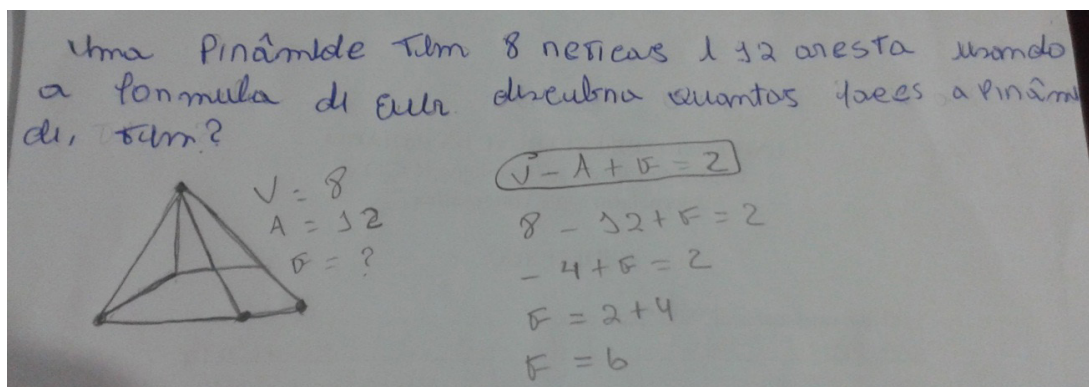 Uma Pinâmide Tem 8 neticas e 12 aresta usando
a formula de Eulr discubna quantas faces a Pinâm
di, tem?
V = 8
A = 12
F = ?
V - A + F = 2
8 - 12 + F = 2
- 4 + F = 2
F = 2 + 4
F = 6